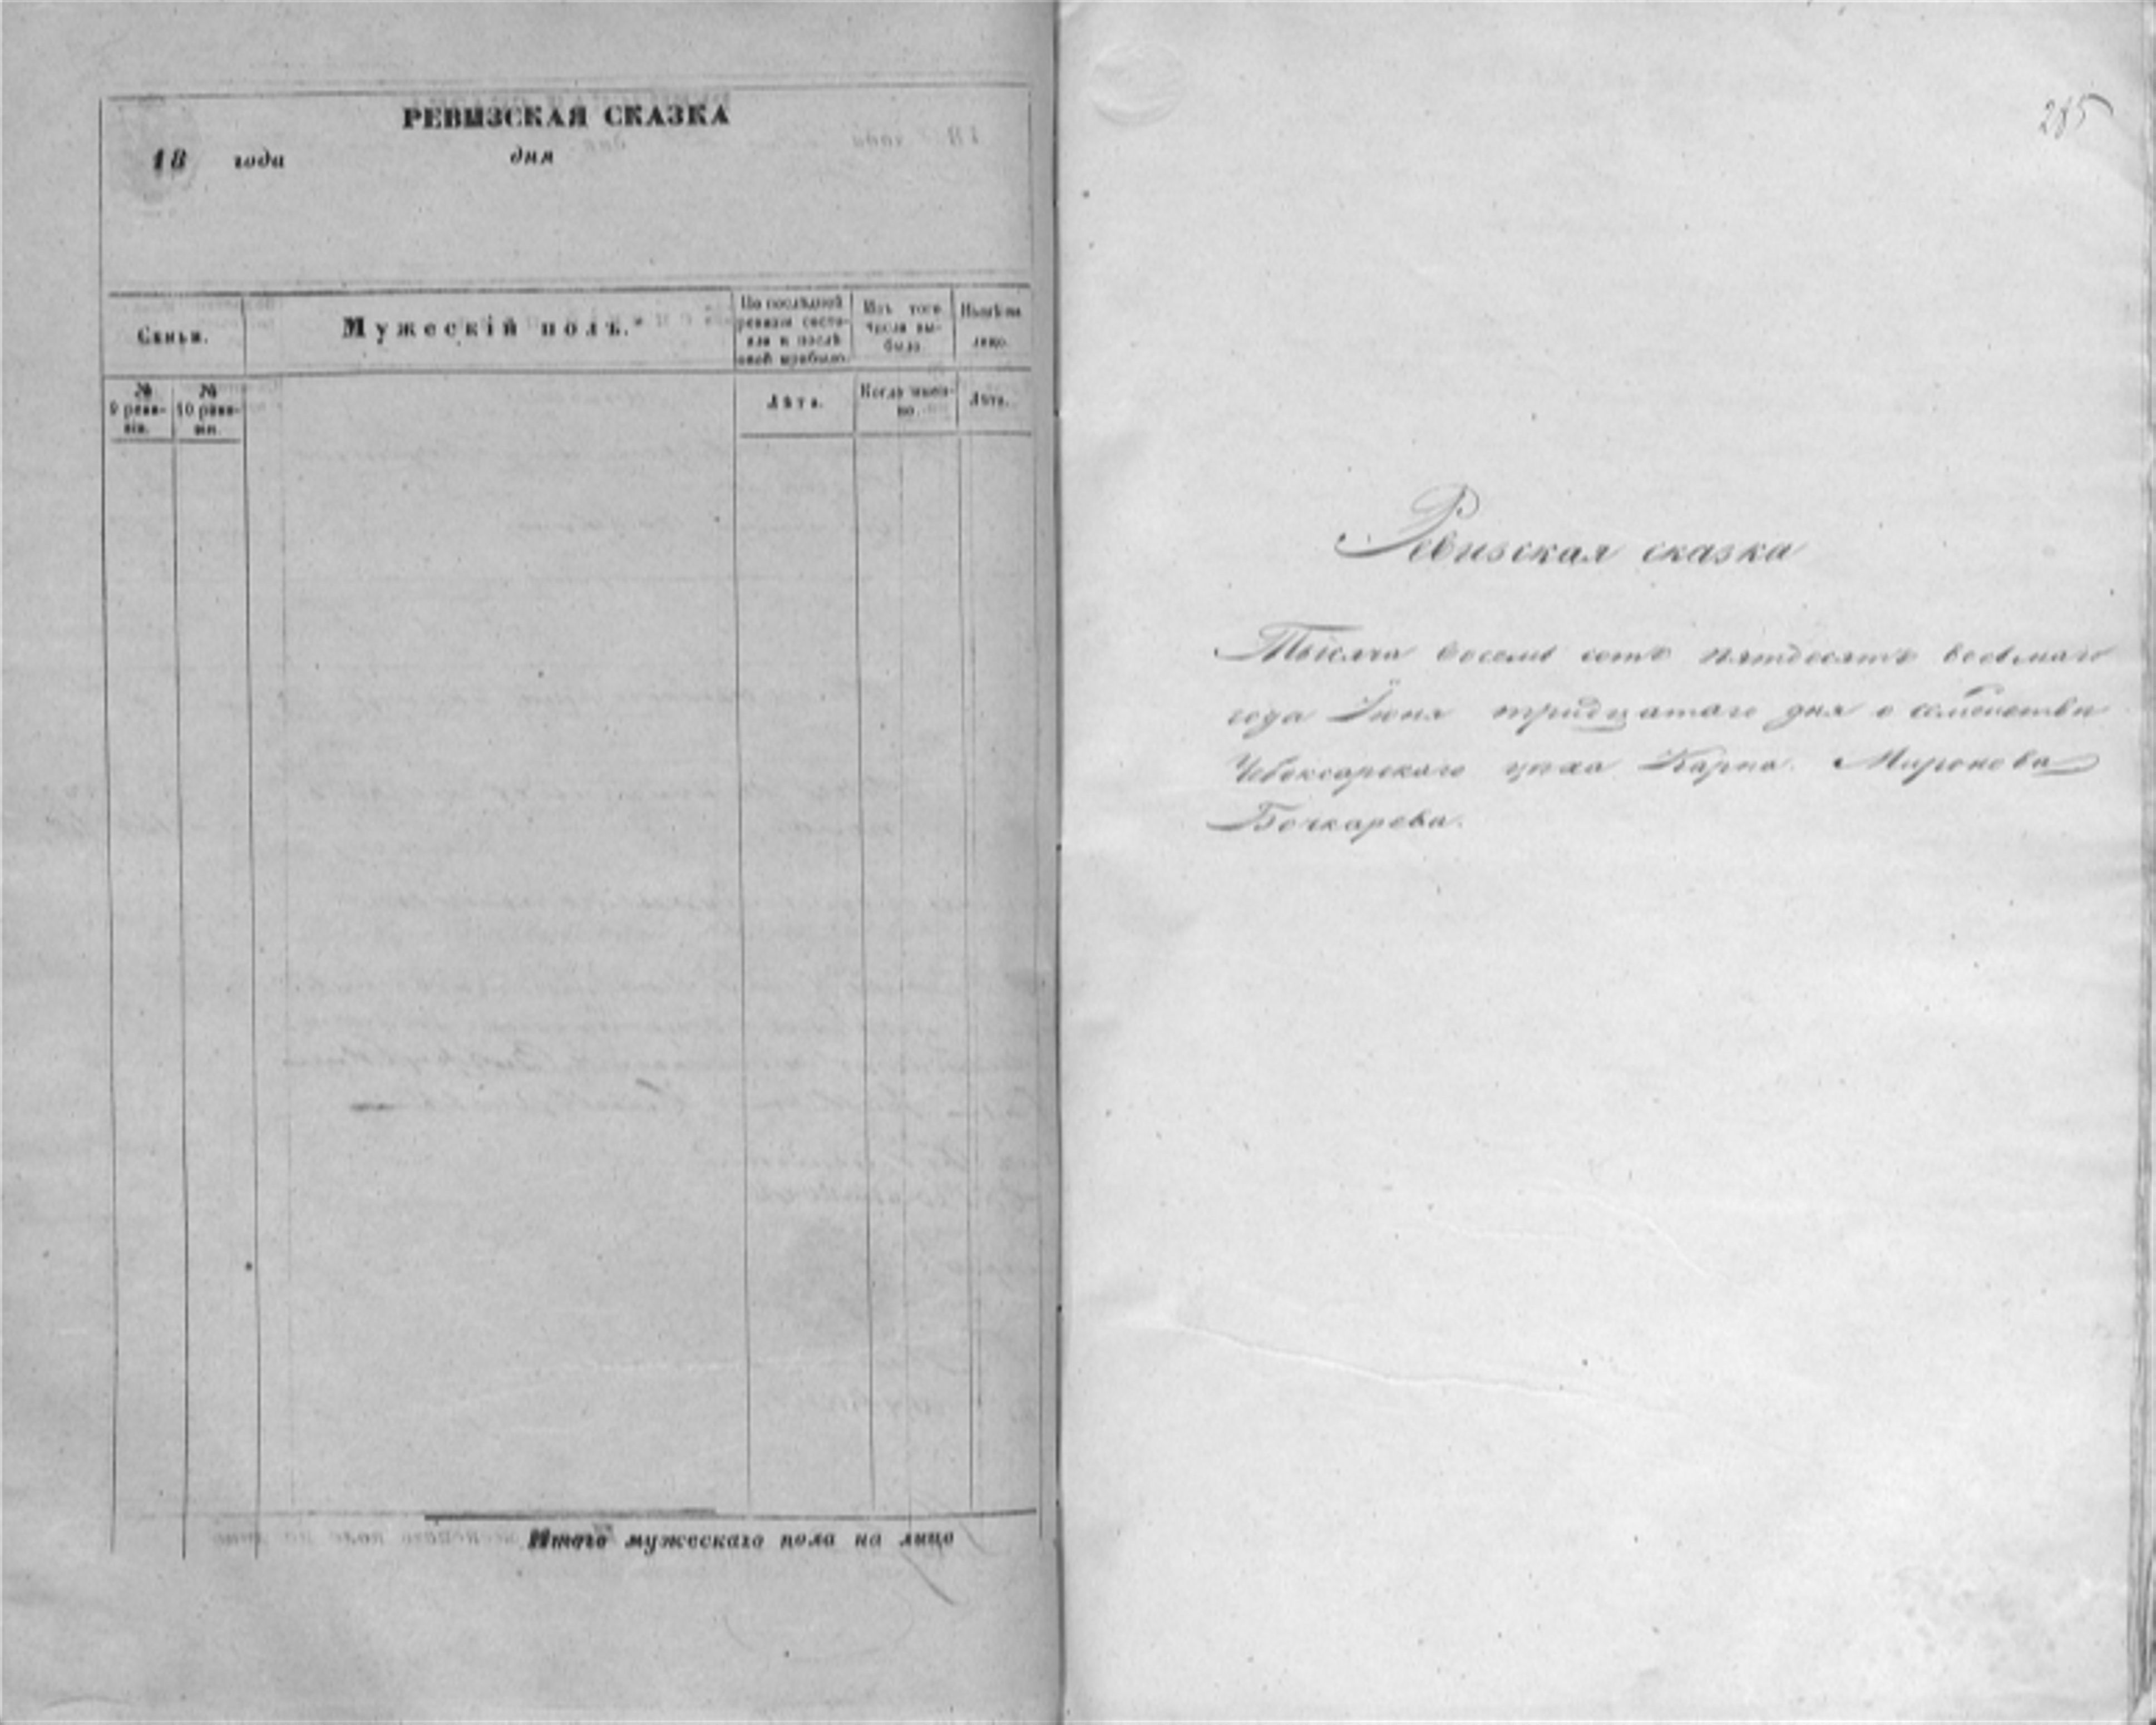 РЕВИЗСКАЯ СКАЗКА
18 года дня
Семьи.
Мужескій полъ.
По послѣдней ревизіи состояло и послѣ оной прибыло.
Изъ того числа выбыло.
Нынѣ на лицо.
№ 9 ревизіи.
№ 10 ревизіи.
Лѣта.
Когда именно.
Лѣта.
Итого мужескаго пола на лицо
285
Ревизская сказка
Тысяча восемь сотъ пятдесятъ восьмаго
года Іюня тридцатаго дня о семействѣ
Чебоксарскаго Карпа Миронова
Бочкарева.